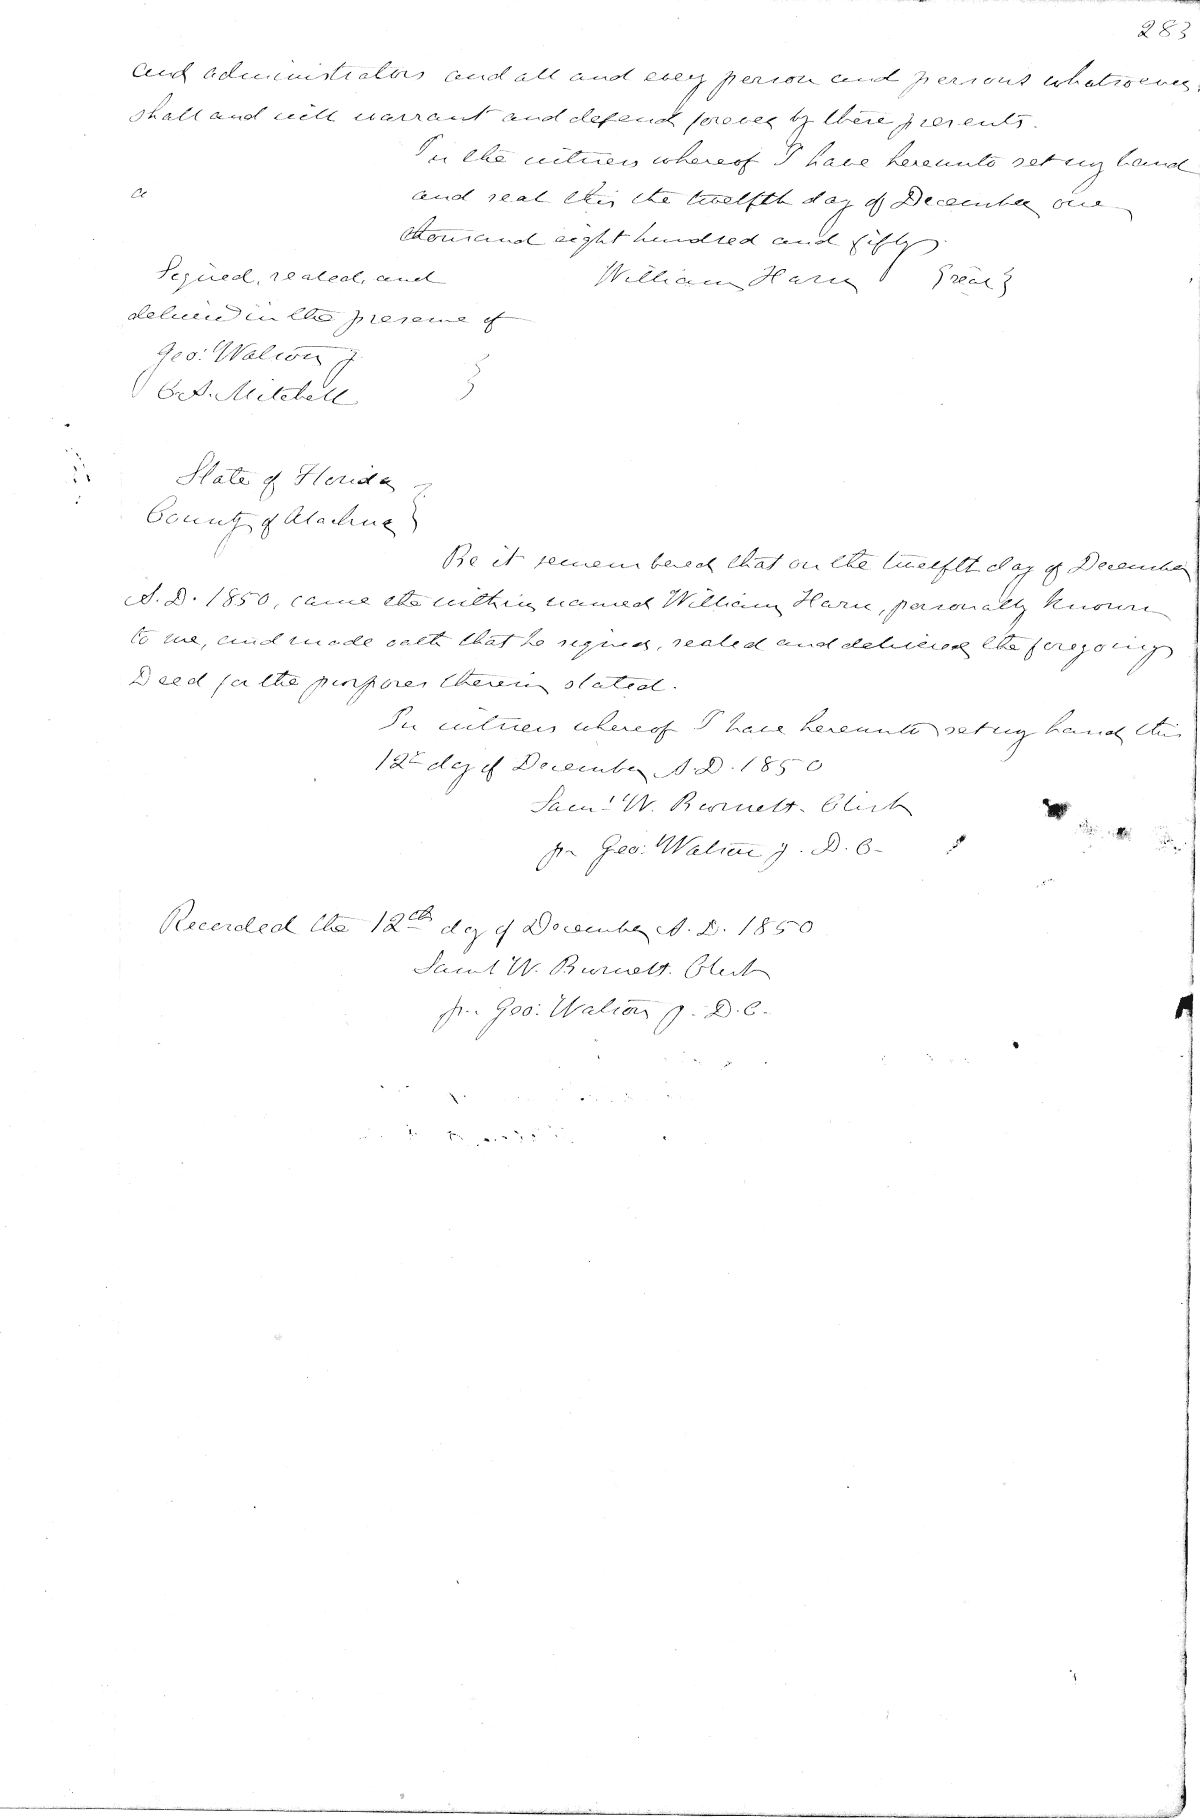 283
and administrators and all and every person and persons whatsoever,
shall and will warrant and defend forever by these presents.
In the witness whereof I have hereunto set my hand
a
and seal this the twelfth day of December one
thousand eight hundred and fifty.
Signed, sealed, and William Harn {seal}
delivered in the presence of
Geo: Walton j.
C. A. Mitchell }
State of Florida }
County of Alachua }
Be it remembered that on the twelfth day of December
A.D. 1850, came the within named William Harn, personally known
to me, and made oath that he signed, sealed and delivered the foregoing
Deed for the purposes therein stated.
In witness whereof I have hereunto set my hand this
12th day of December A.D. 1850
Saml W. Burnett. Clerk
pr Geo: Walton j. D. C.
Recorded the 12th day of December A.D. 1850
Saml W. Burnett. Clerk
pr. Geo: Walton j. D.C.